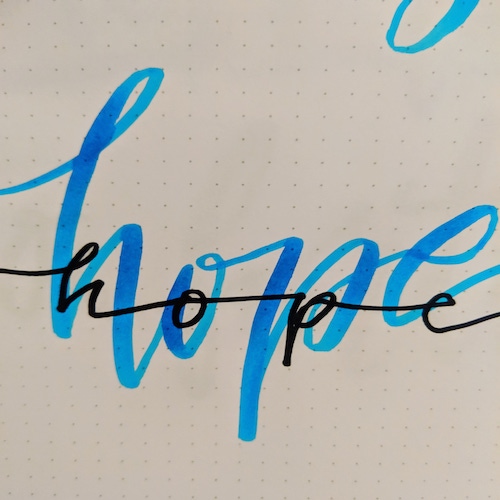 hope
hope